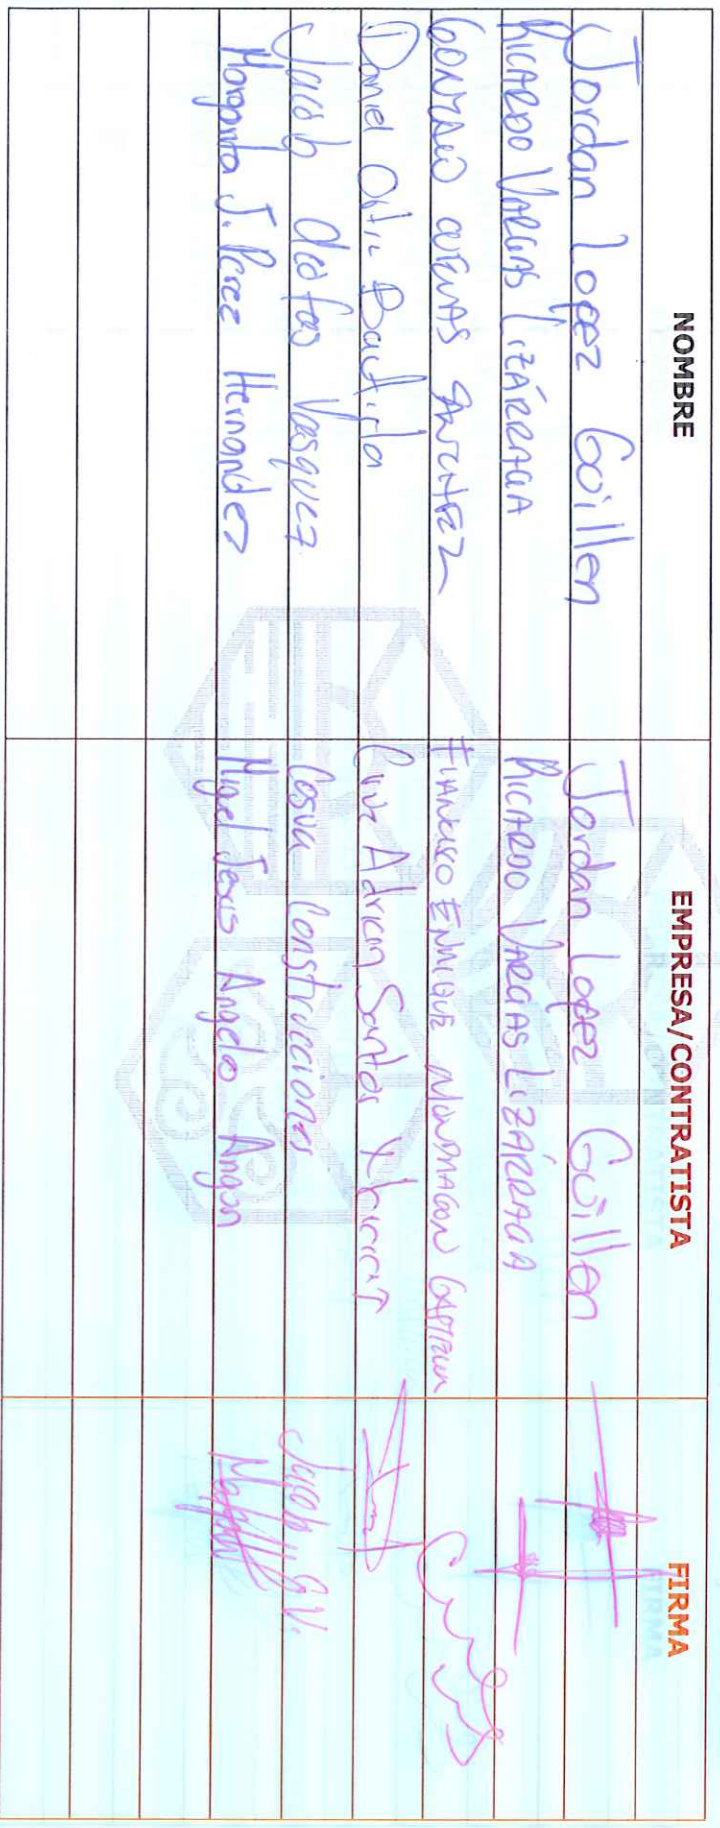 NOMBRE EMPRESA/CONTRATISTA FIRMA
Jordan Lopez Guillen Jordan Lopez Guillen
RICARDO VARGAS LIZÁRRAGA RICARDO VARGAS LIZÁRRAGA
GONZALO SANCHEZ FRANCISCO ENRIQUE
Daniel Ortiz Bautista Cruz Adrian Santos
Jacob Vasquez Cosva Construcciones Jacob
Margarita J. Perez Hernandez Miguel Jesus Angeles Angon